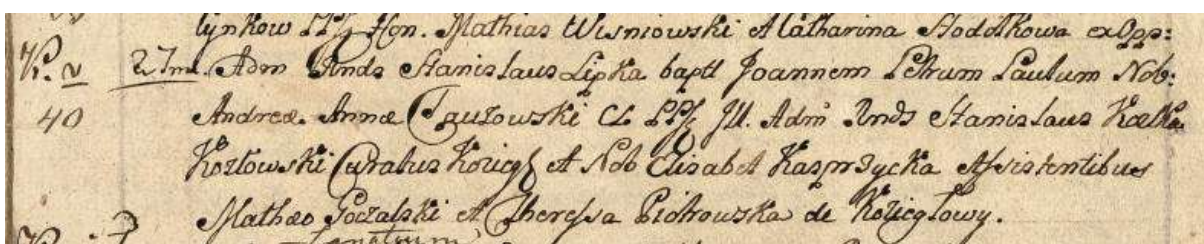 tynkow LPf Hon. Mathias Wisniowski et Catharina Stodolkowa ex Opp:
V. v 27ma. Adm Rnds Stanislaus Lipka bapti Joannem Petrum Paulum Nob:
40 Andreæ. Annæ CL LPf Ill. Adm Rnds Stanislaus
Kozłowski Curatus Koziegł et Nob Elisabet Kasprzycka Assistentibus
Mathæo Goczalski et Theressa Piotrowska de Kozieglowy.